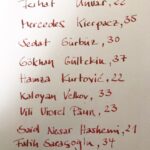 Ferhat Unvar, 22
Mercedes Kierpacz, 35
Sedat Gürbüz, 30
Gökhan Gültekin, 37
Hamza Kurtović, 22
Kaloyan Velkov, 33
Vili Viorel Păun, 23
Said Nesar Hashemi, 21
Fatih Saraçoğlu, 34